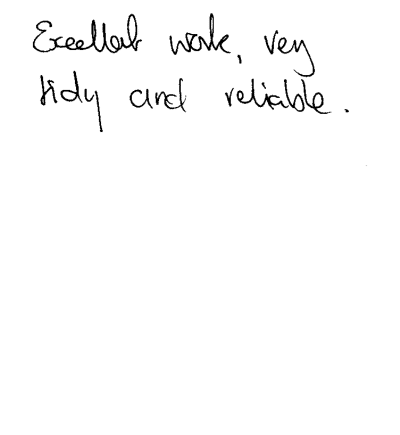 Excellent work, very
tidy and reliable.